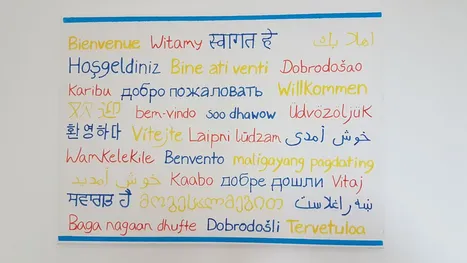 Bienvenue Witamy स्वागत हे اهلا بك
Hoşgeldiniz Bine ati venti Dobrodošao
Karibu добро пожаловать Willkommen
欢迎 bem-vindo soo dhawow Üdvözöljük
환영하다 Vítejte Laipni lūdzam خوش آمدی
Wamkelekile Benvento maligayang pagdating
خوش آمدید Kaabo добре дошли Vitaj
ਸਵਾਗਤ ਹੈ მოგესალმებით ښه راغلاست
Baga nagaan dhufte Dobrodošli Tervetuloa